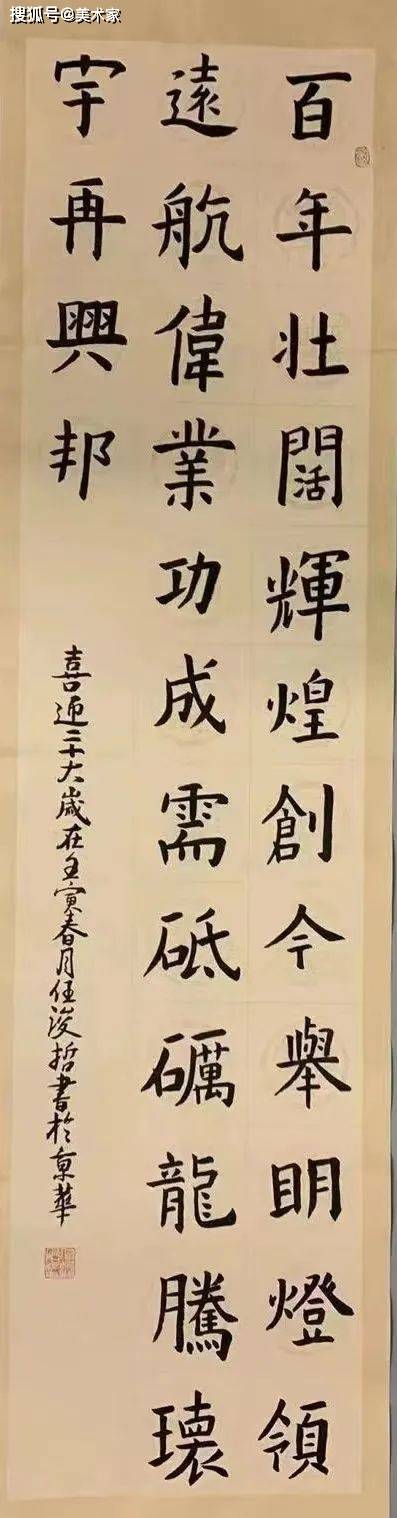 搜狐号@美术家
百年壯闊輝煌創今舉明燈領
遠航偉業功成需砥礪龍騰瓌
宇再興邦
喜迎二十大歲在壬寅春月任浚哲書於京華